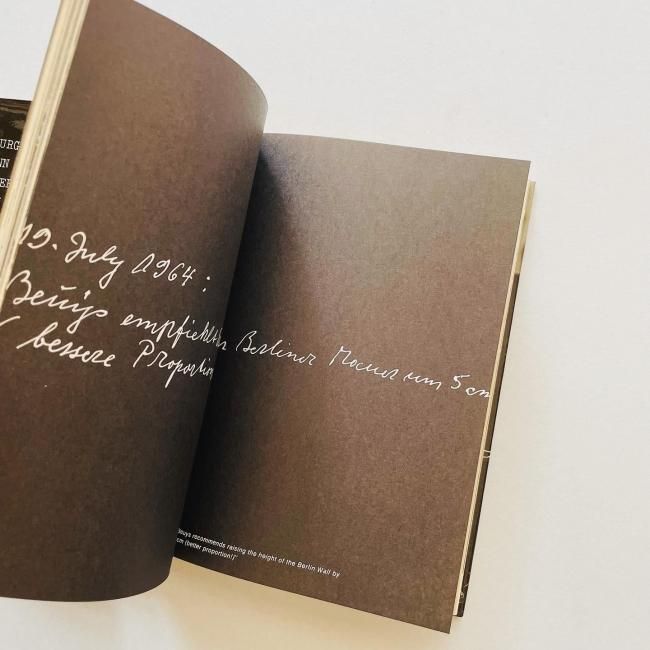 URG
NN
ER
19. July 1964:
Beuys empfiehlt Berliner Mauer um 5 cm
( bessere Proportion
Beuys recommends raising the height of the Berlin Wall by
cm (better proportion!)"